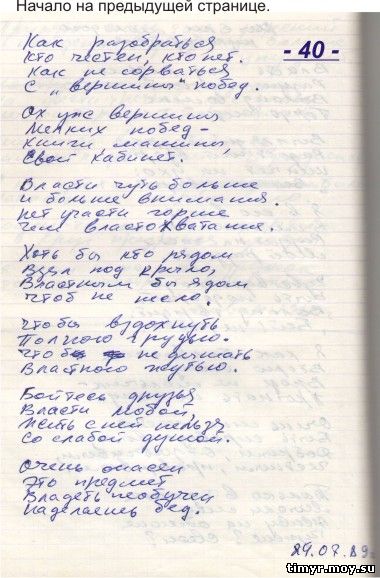 Начало на предыдущей странице.
- 40 -
Как разобраться
Кто честен, кто нет.
Как не сорваться
С "вершины" побед.
Ох уж вершины
Мелких побед -
Книги, машины,
Свой кабинет.
Власти чуть больше
и больше внимания.
Нет участи горше
Чем властохватание.
Хоть бы кто рядом
Взял под крыло,
Властным бы ядом
Чтоб не жгло.
Чтобы вздохнуть
Полною грудью.
Чтоб не дышать
Властного жутью.
Бойтесь друзья
Власти любой,
Жить с ней нельзя
Со слабой душой.
Очень опасен
Это предмет
Владеть необучен
Наделаешь бед.
29.07.89г.
timyr.moy.su